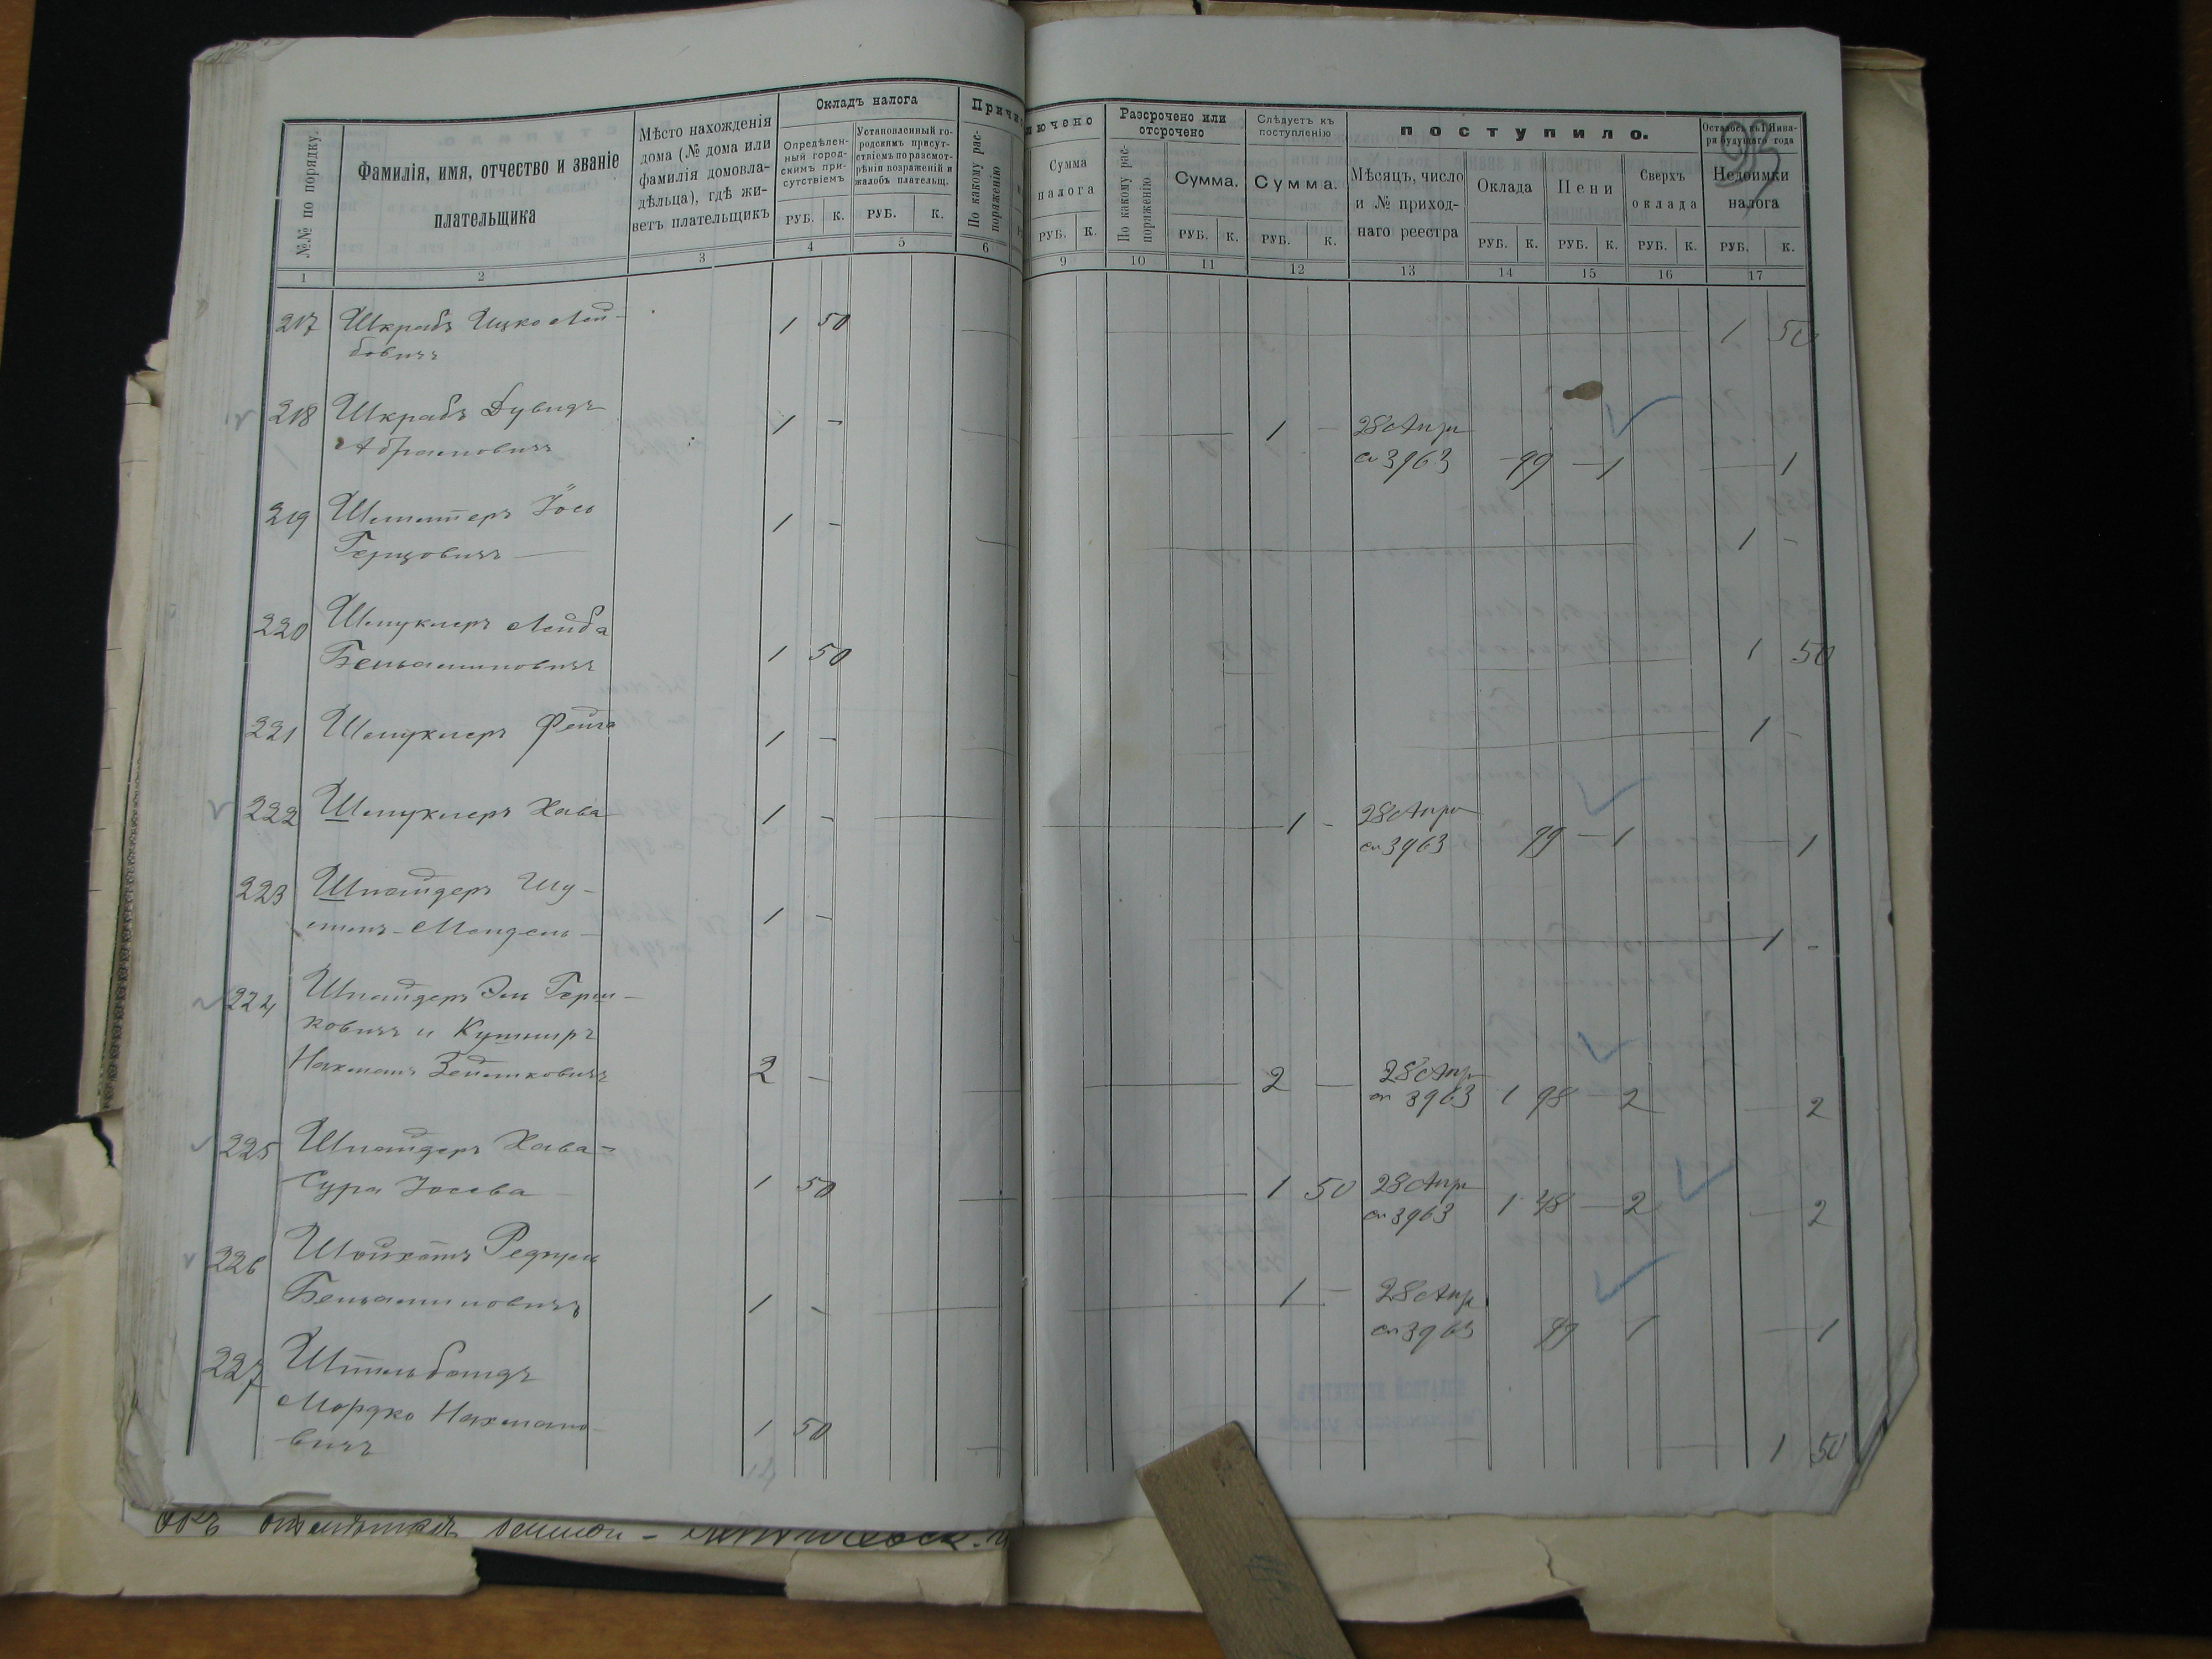 93
№№ по порядку.
Фамилія, имя, отчество и званіе
плательщика
Мѣсто нахожденія
дома (№ дома или
фамилія домовла-
дѣльца), гдѣ жи-
ветъ плательщикъ
Окладъ налога
Опредѣлен-
ный город-
скимъ при-
сутствіемъ
Установленный го-
родскимъ присут-
ствіемъ по разсмот-
рѣніи возраженій и
жалобъ плательщ.
РУБ. К. РУБ. К.
Причи
По какому рас-
поряженію
лючено
Сумма
налога
РУБ. К.
Разсрочено или
отсрочено
По какому рас-
поряженію
Сумма.
РУБ. К.
Слѣдуетъ къ
поступленію
Сумма.
РУБ. К.
поступило.
Мѣсяцъ, число
и № приход-
наго реестра
Оклада
РУБ. К.
Пени
РУБ. К.
Сверхъ
оклада
РУБ. К.
Осталось къ 1 Янва-
ря будущаго года
Недоимки
налога
РУБ. К.
1 2 3 4 5 6 9 10 11 12 13 14 15 16 17
217 Шкрабъ Ицко Лей-
бовичъ 1 50 1 50
218 Шкрабъ Дувидъ
Абрамовичъ 1 - 1 - 28 Апр
3963 99 - 1 - 1
219
Герцовичъ 1 - 1 -
220 Шмуклеръ Лейба
Беньаминовичъ 1 50 1 50
221 Шмуклеръ Фейга 1 - 1 -
222 Шмуклеръ Хава 1 - 1 - 28 Апр
3963 99 - 1 - 1
223 Шнайдеръ Шу-
Мендель 1 - 1 -
224 Шнайдеръ Эль Герш-
ковичъ и Кушниръ
Нахманъ Зейликовичъ 2 - 2 - 28 Апр
3963 1 98 - 2 - 2
225 Шнайдеръ Хава-
Сура Іосева 1 50 1 50 28 Апр
3963 1 48 - 2 - 2
226 Шойхетъ
Беньаминовичъ 1 - 1 - 28 Апр
3963 99 1 - 1
227 Штильбандъ
Мордко Нахмано-
вичъ 1 50 1 50
14